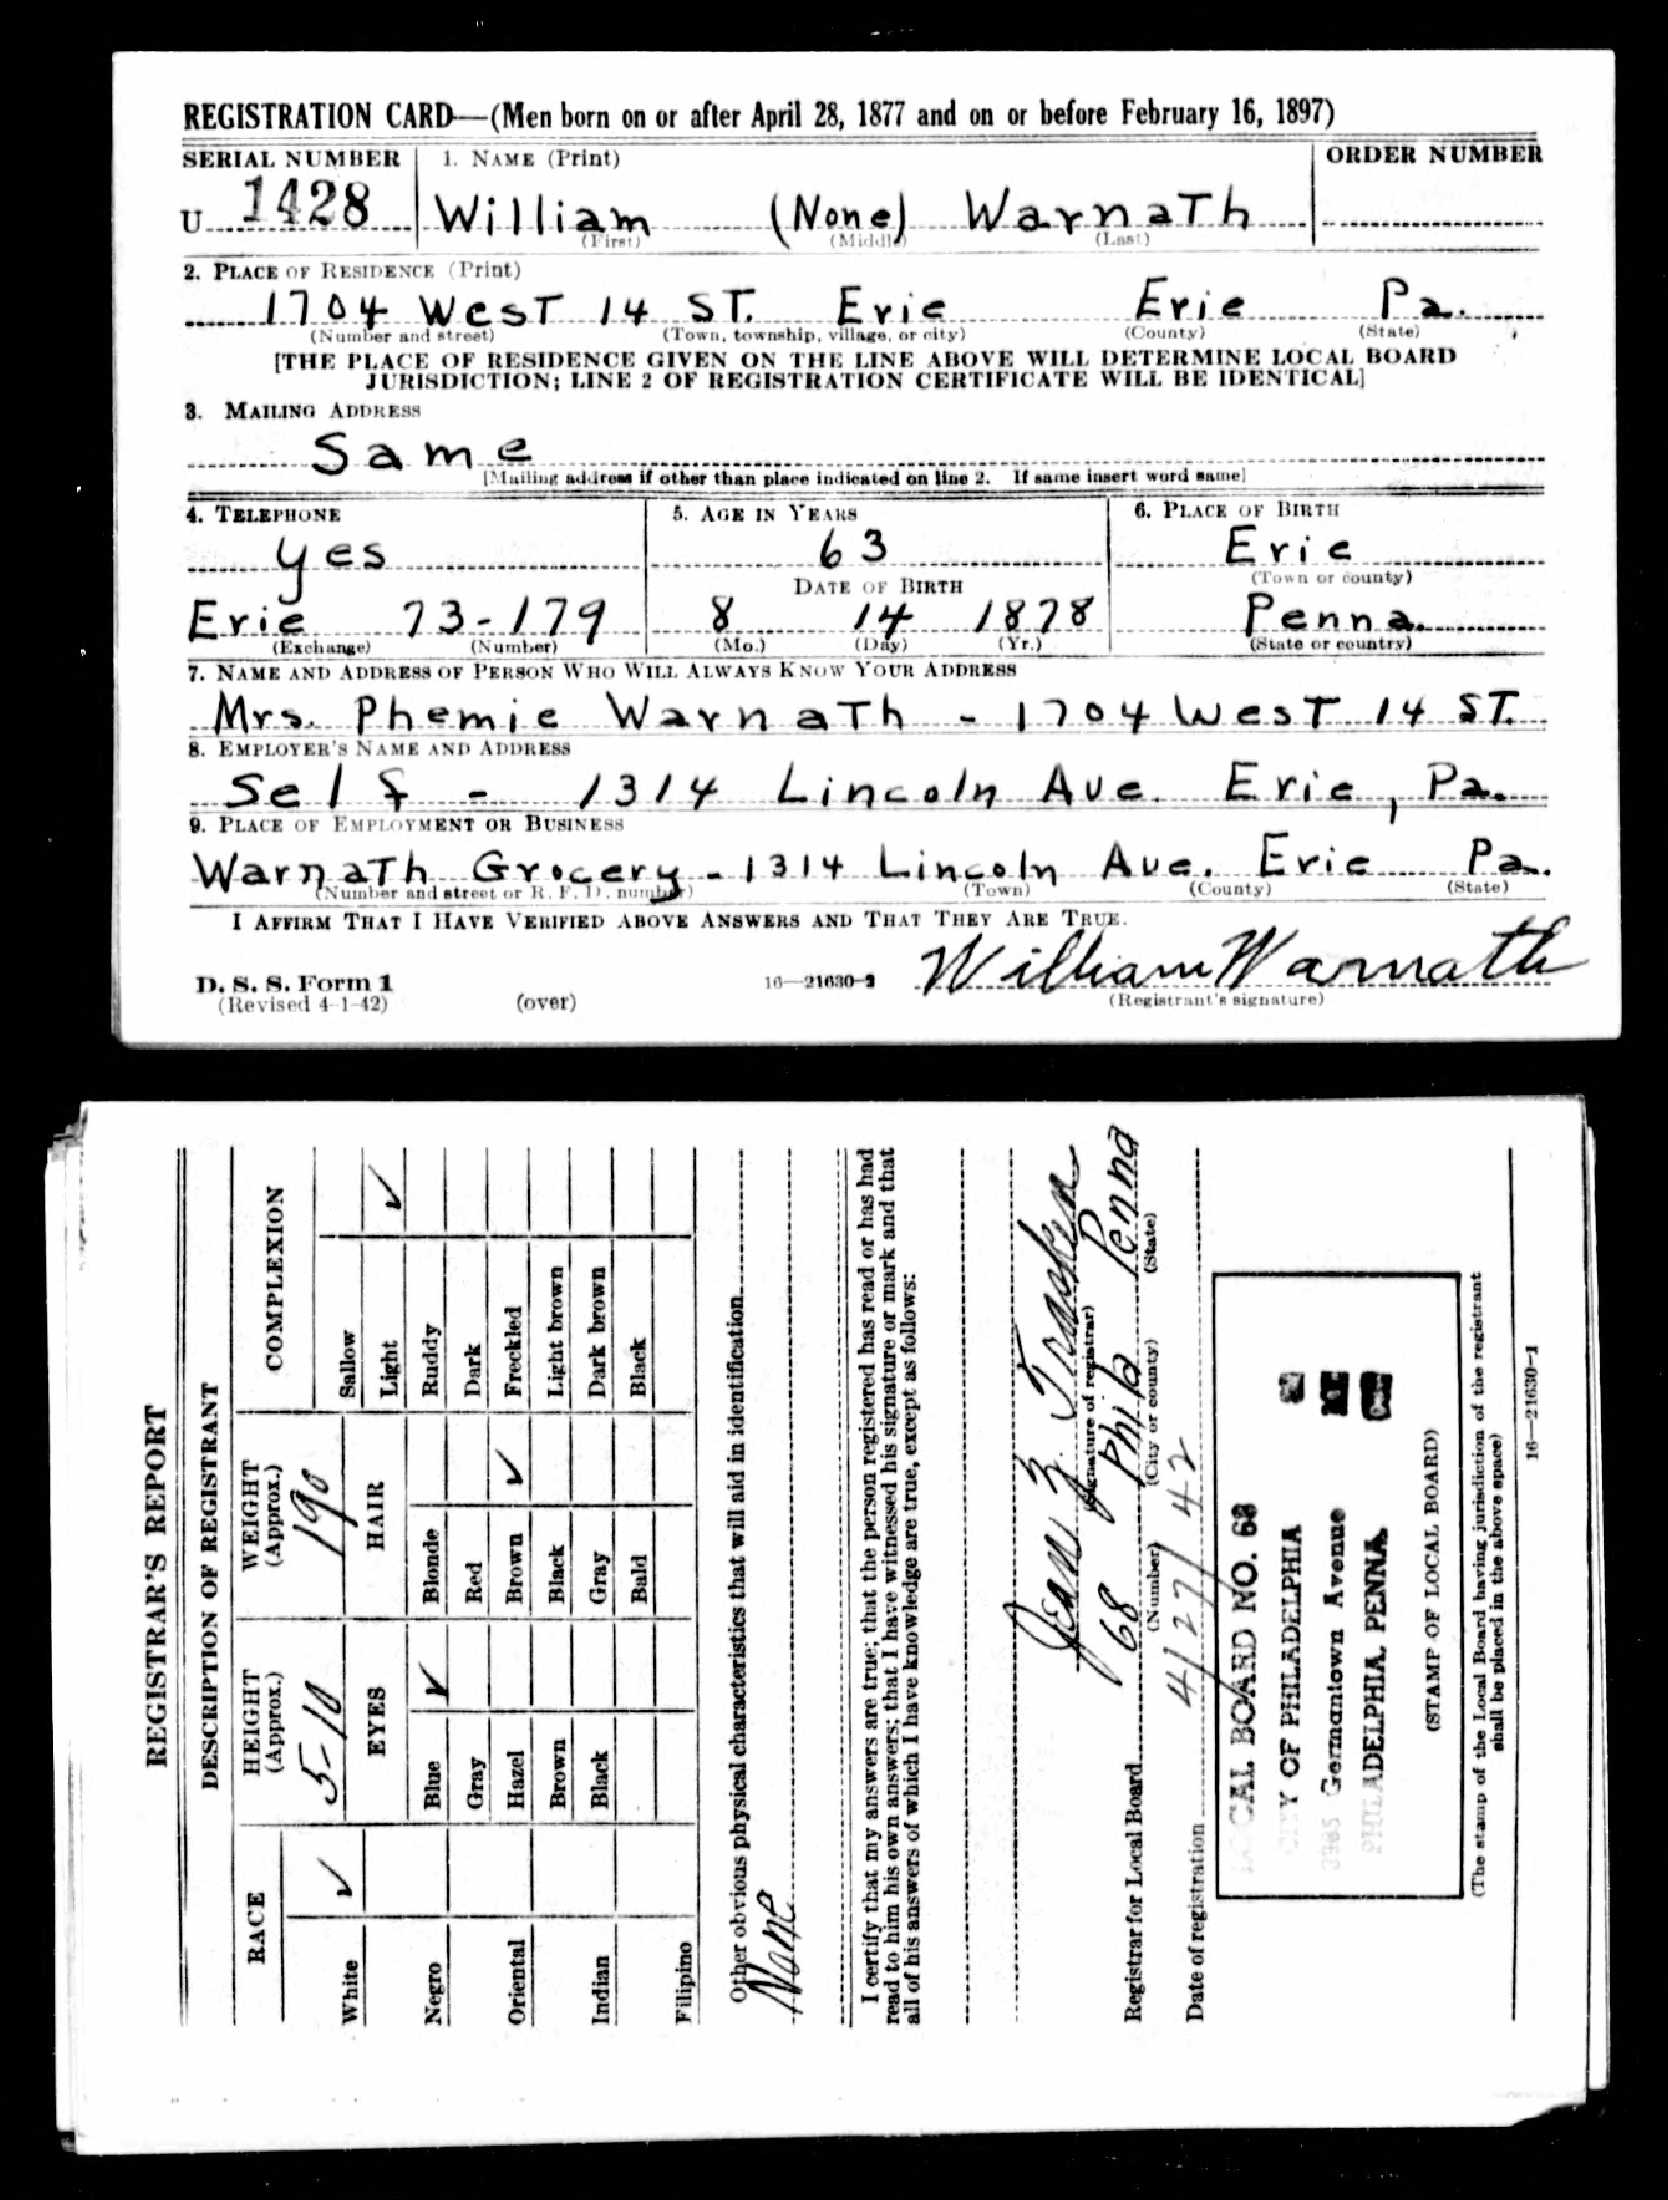 REGISTRATION CARD—(Men born on or after April 28, 1877 and on or before February 16, 1897)
SERIAL NUMBER 1. NAME (Print) ORDER NUMBER
U 1428 William (None) Warnath
(First) (Middle) (Last)
2. PLACE OF RESIDENCE (Print)
1704 West 14 ST. Erie Erie Pa.
(Number and street) (Town, township, village, or city) (County) (State)
[THE PLACE OF RESIDENCE GIVEN ON THE LINE ABOVE WILL DETERMINE LOCAL BOARD
JURISDICTION; LINE 2 OF REGISTRATION CERTIFICATE WILL BE IDENTICAL]
3. MAILING ADDRESS
Same
[Mailing address if other than place indicated on line 2. If same insert word same]
4. TELEPHONE 5. AGE IN YEARS 6. PLACE OF BIRTH
yes 63 Erie
DATE OF BIRTH (Town or county)
Erie 73-179 8 14 1878 Penna.
(Exchange) (Number) (Mo.) (Day) (Yr.) (State or country)
7. NAME AND ADDRESS OF PERSON WHO WILL ALWAYS KNOW YOUR ADDRESS
Mrs. Phemie Warnath - 1704 West 14 ST.
8. EMPLOYER'S NAME AND ADDRESS
Self - 1314 Lincoln Ave. Erie, Pa.
9. PLACE OF EMPLOYMENT OR BUSINESS
Warnath Grocery - 1314 Lincoln Ave. Erie Pa.
(Number and street or R. F. D. number) (Town) (County) (State)
I AFFIRM THAT I HAVE VERIFIED ABOVE ANSWERS AND THAT THEY ARE TRUE.
William Warnath
D. S. S. Form 1 16—21630-2
(Revised 4-1-42) (over) (Registrant's signature)
REGISTRAR'S REPORT
DESCRIPTION OF REGISTRANT
RACE HEIGHT (Approx.) WEIGHT (Approx.) COMPLEXION
5-10 190
White ✓ EYES HAIR Sallow
Light ✓
Negro Blue ✓ Blonde Ruddy
Gray Red Dark
Oriental Hazel Brown ✓ Freckled
Brown Black Light brown
Indian Black Gray Dark brown
Bald Black
Filipino
Other obvious physical characteristics that will aid in identification
None
I certify that my answers are true; that the person registered has read or has had
read to him his own answers; that I have witnessed his signature or mark and that
all of his answers of which I have knowledge are true, except as follows:
(Signature of registrar)
Registrar for Local Board 68 Phila Penna
(Number) (City or county) (State)
Date of registration 4/27/42
LOCAL BOARD NO. 68
CITY OF PHILADELPHIA
Germantown Avenue
PHILADELPHIA, PENNA.
(STAMP OF LOCAL BOARD)
(The stamp of the Local Board having jurisdiction of the registrant
shall be placed in the above space)
16—21630-1